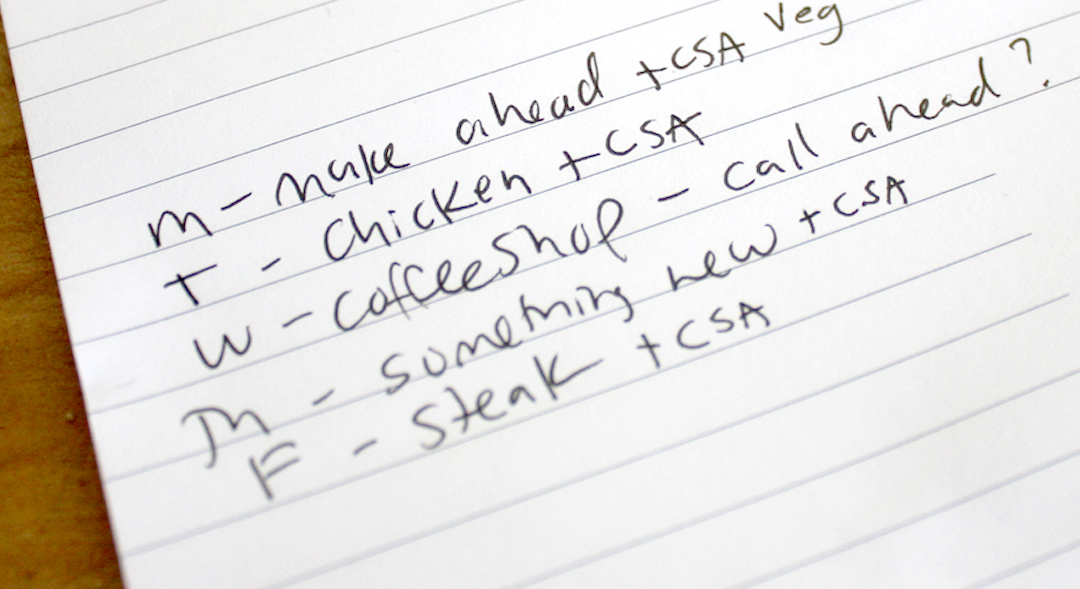 M - Make ahead + CSA Veg
T - Chicken + CSA
W - Coffeeshop - Call ahead?
Th - something new + CSA
F - Steak + CSA